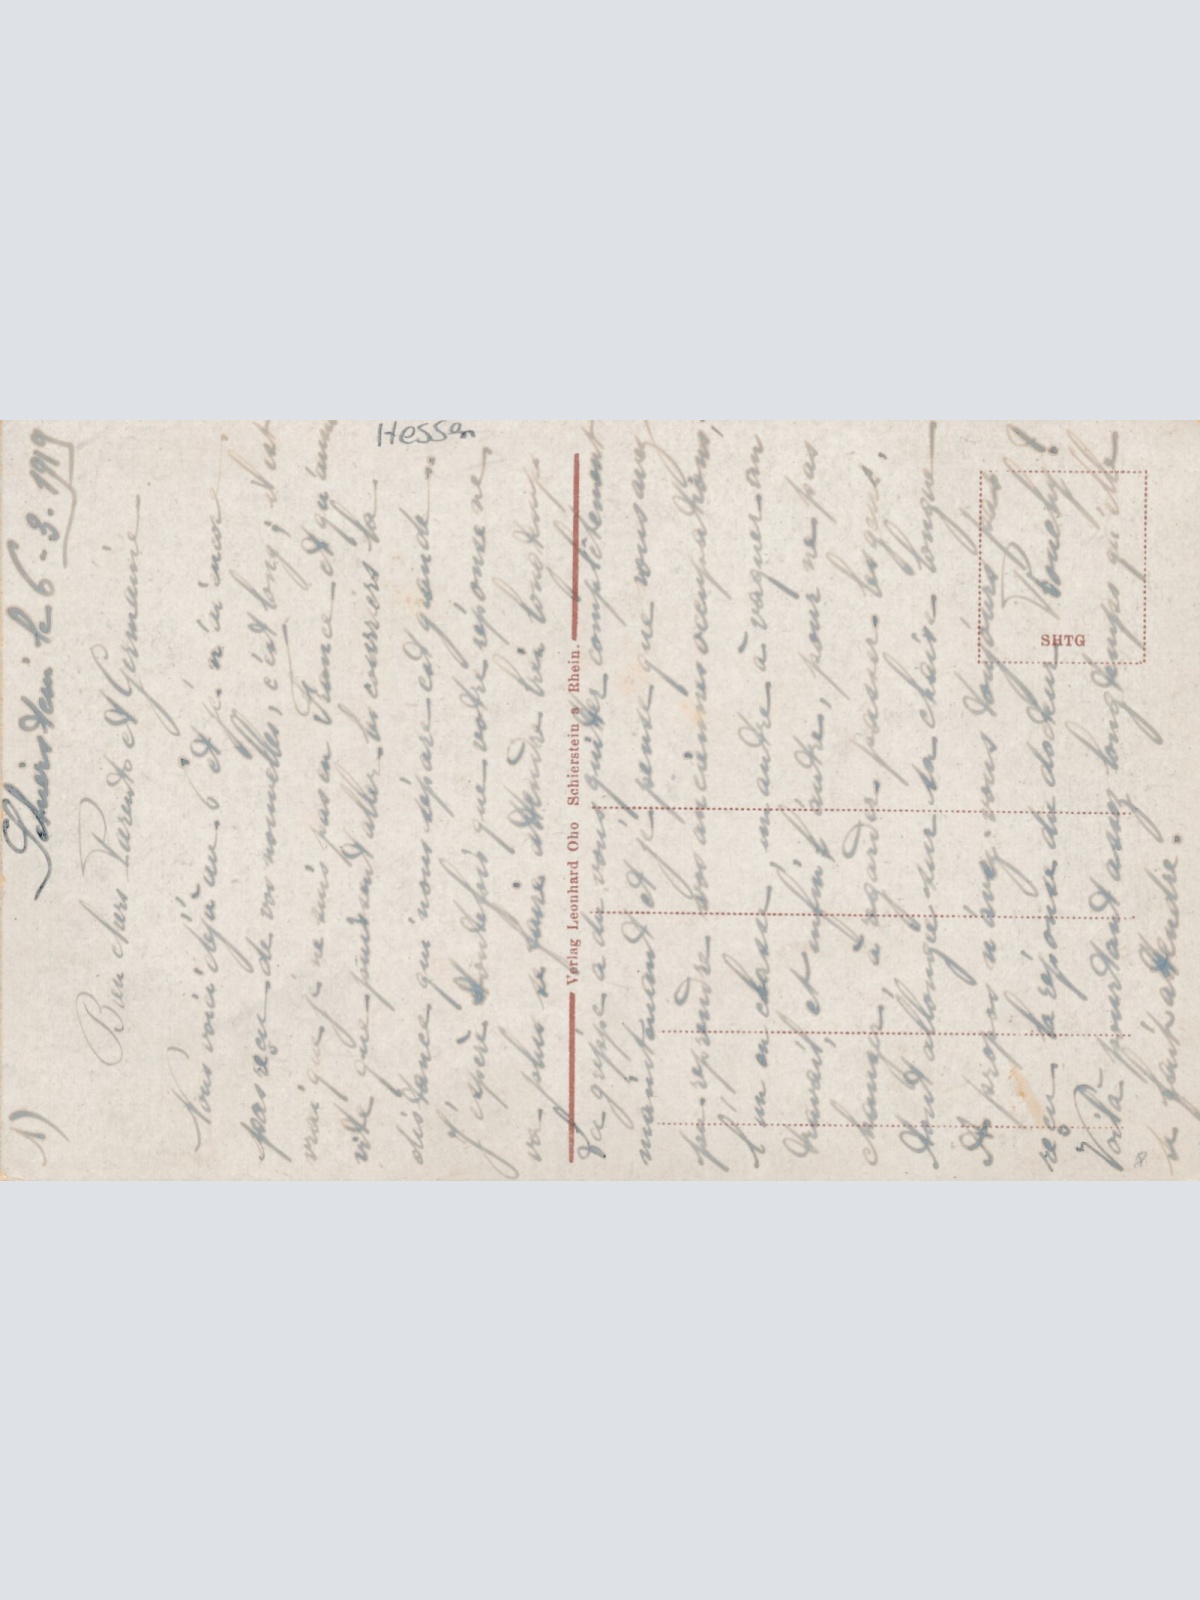 1)
Schierstein le 6-3.1919
Bien chers Parents et Germaine
Nous voici déjà au 6 et je n'ai encore
pas reçu de vos nouvelles, c'est long; il est
vrai que je ne suis pas en France et qu'aussi
vite que puissent aller les courriers la
distance qui nous sépare est grande.
J'espère toutefois que votre réponse ne
va plus se faire attendre bien longtemps
La grippe a dû vous quitter complètement
maintenant et je pense que vous avez
pu reprendre vos anciennes occupations,
l'un en classe un autre à vaquer au
travail, et enfin l'autre, pour ne pas
changer à regarder passer les gens,
tout allongée sur sa chaise longue
A propos n'avez-vous toujours pas
reçu la réponse du docteur Bouchy?
Voilà pourtant assez longtemps qu'elle
se fait attendre.
Hessen
Verlag Leonhard Oho Schierstein a Rhein.
SHTG